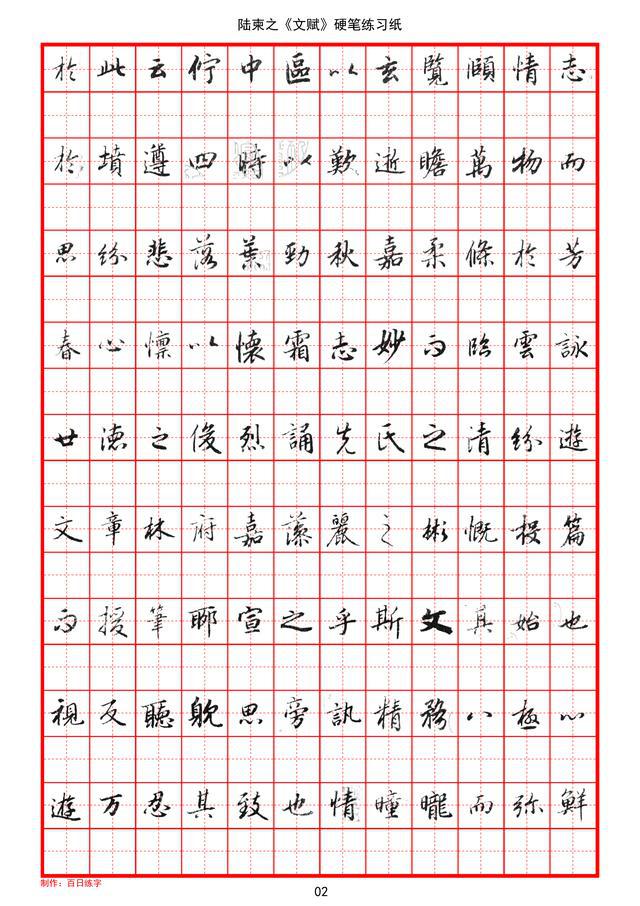 陆柬之《文赋》硬笔练习纸
於此云佇中區以玄覽頤情志
於墳遵四時以歎逝瞻萬物而
思紛悲落葉勁秋嘉柔條於芳
春心懍以懷霜志妙而臨雲詠
世德之俊烈誦先氏之清紛遊
文章林府嘉藻麗之彬慨投篇
而援筆聊宣之乎斯文其始也
視反聽躭思旁訊精務八極心
遊万忍其致也情曈曨而弥鮮
制作：百日练字
02